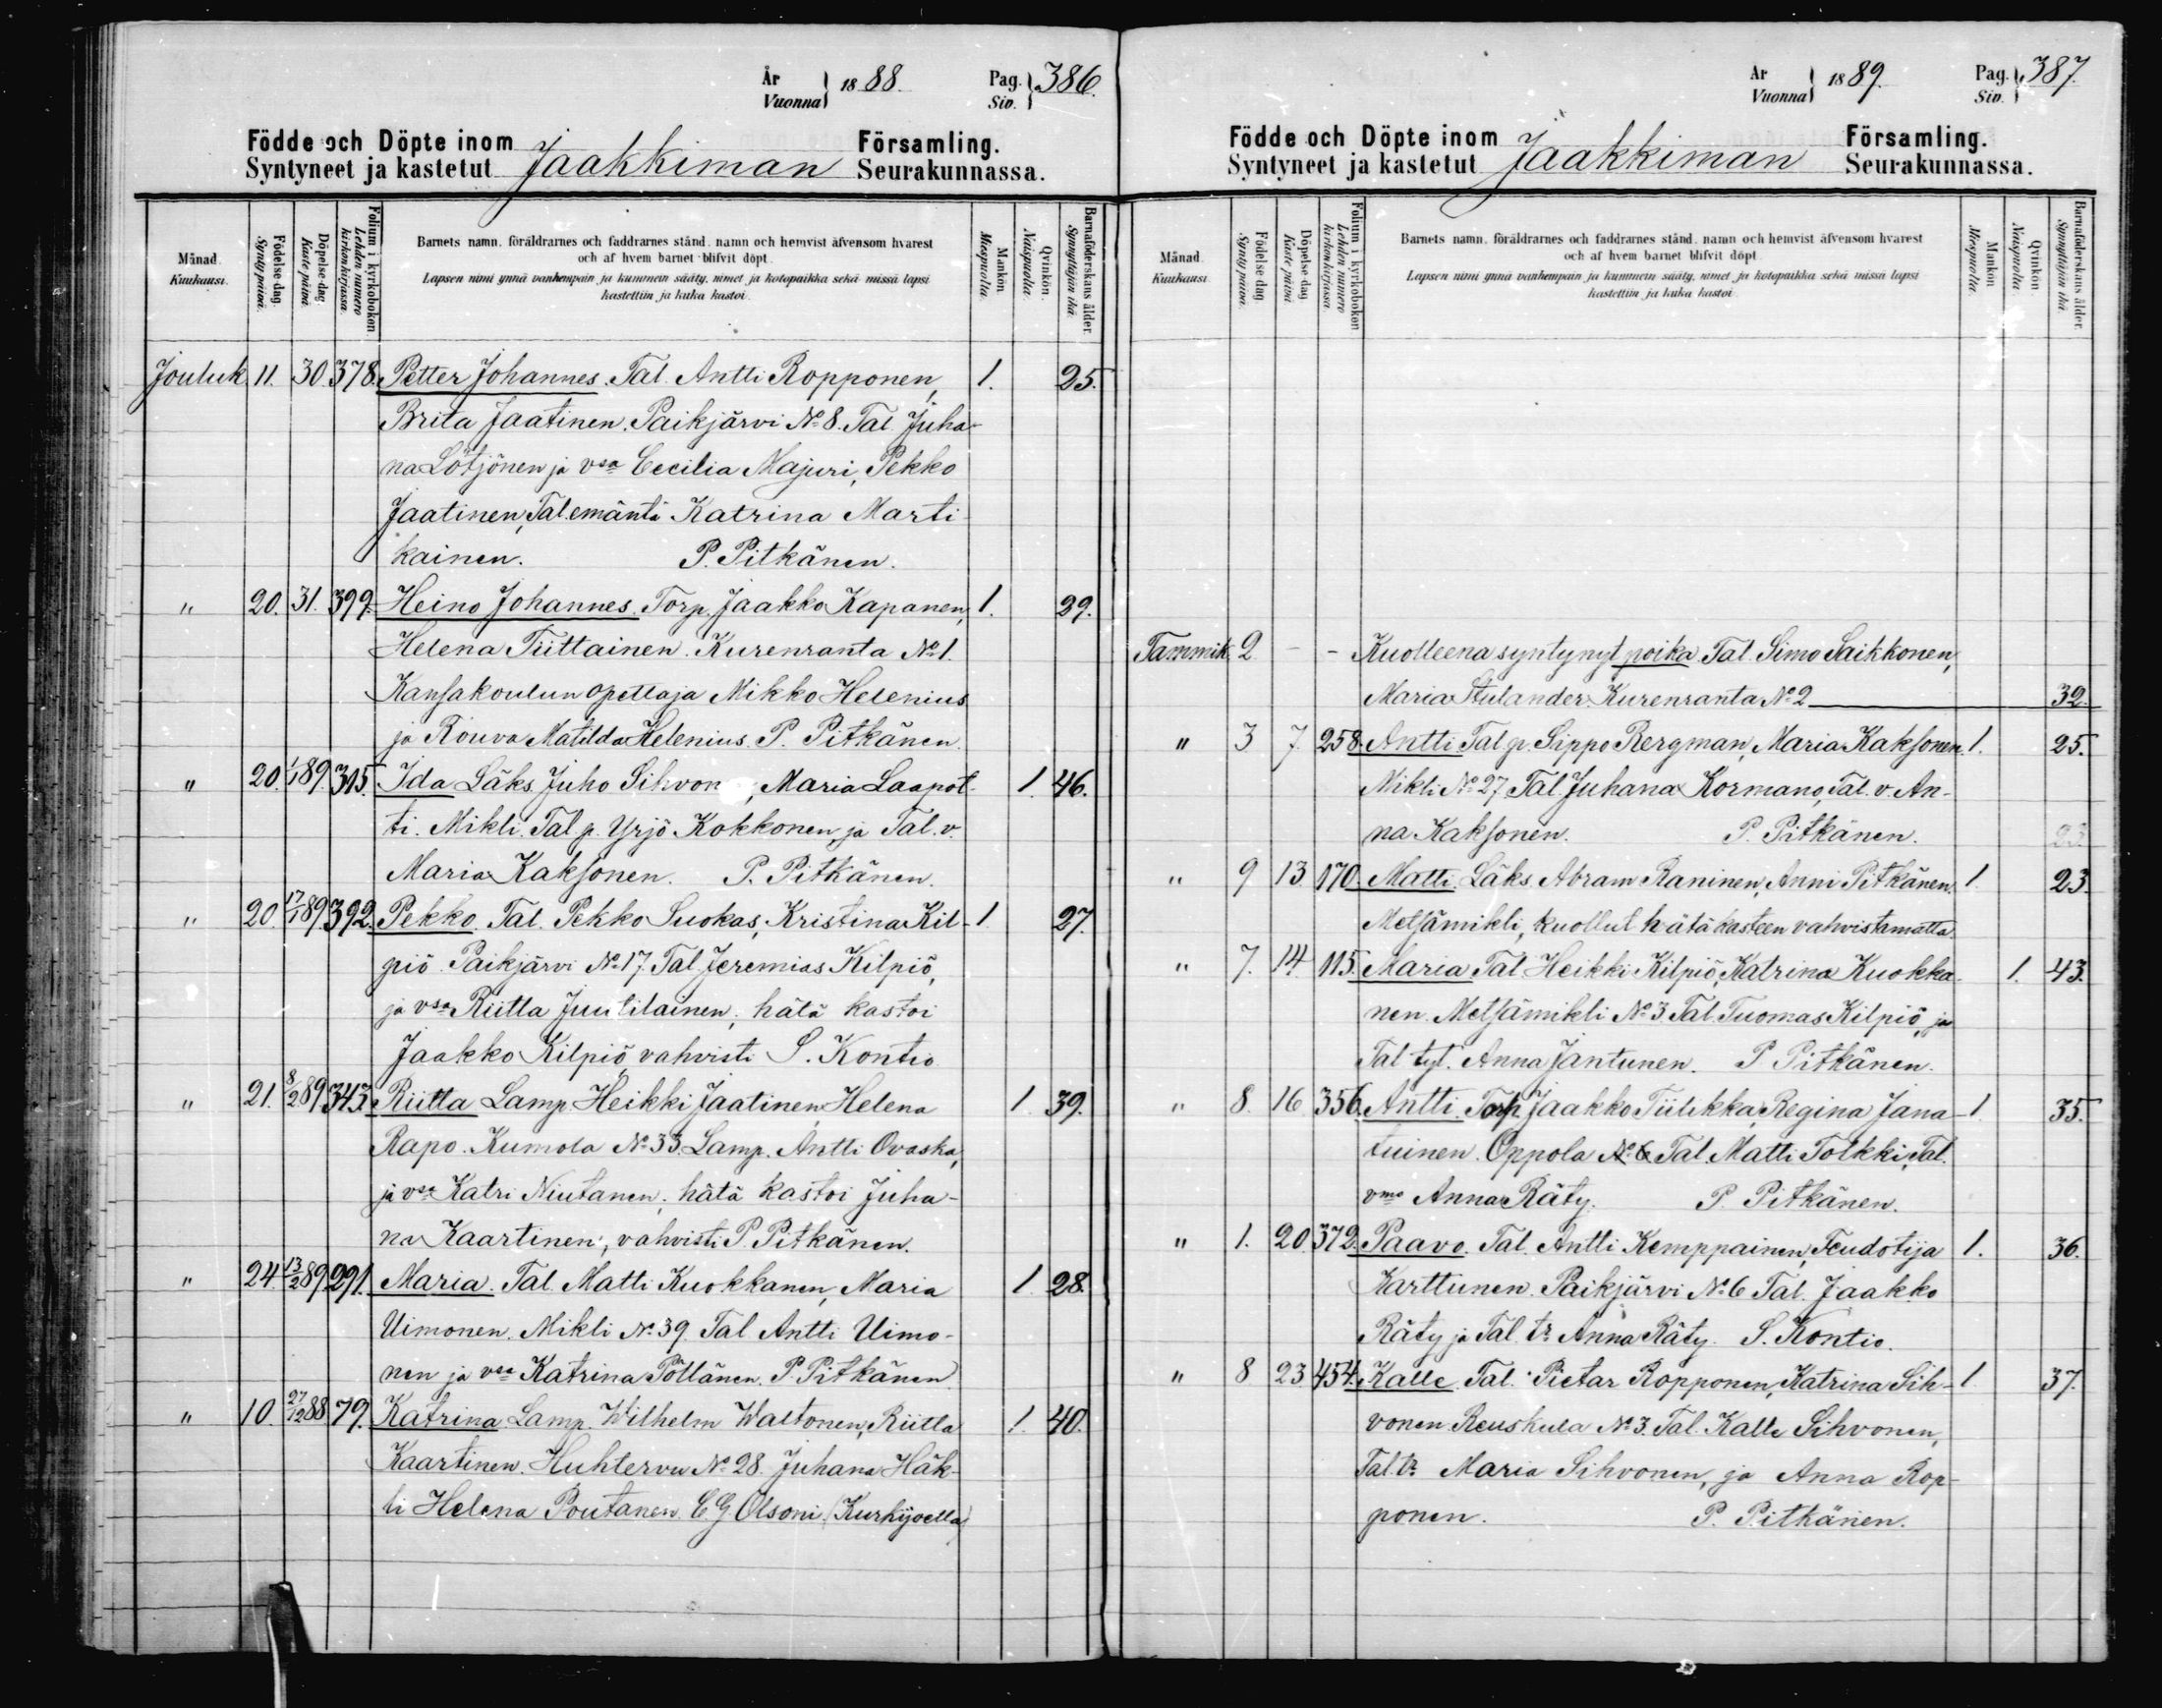 År
Vuonna } 1888. Pag.
Siv. } 386.
Födde och Döpte inom Församling.
Syntyneet ja kastetut Jaakkiman Seurakunnassa.
Månad.
Kuukausi.
Födelse dag.
Synty päivä.
Döpelse dag.
Kaste päivä.
Folium i kyrkobokon.
Lehden numero
kirkonkirjassa.
Barnets namn, föräldrarnes och faddrarnes stånd, namn och hemvist äfvensom hvarest
och af hvem barnet blifvit döpt.
Lapsen nimi ynnä vanhempain ja kummein sääty, nimet ja kotopaikka sekä missä lapsi
kastettiin ja kuka kastoi.
Mankön.
Miespuolta.
Qvinkön.
Naispuolta.
Barnaföderskans ålder.
Synnyttäjän ikä.
Jouluk 11. 30. 378. Petter Johannes. Tal. Antti Ropponen, 1. 25.
Brita Jaatinen. Paikjärvi No 8. Tal. Juha-
na Lötjönen ja vsa Cecilia Majuri, Pekko
Jaatinen, Tal.emäntä Katrina Marti-
kainen. P. Pitkänen.
" 20. 31. 399. Heino Johannes. Torp. Jaakko Kapanen, 1. 29.
Helena Tiittainen. Kurenranta No 1.
Kansakoulun opettaja Mikko Helenius
ja Rouva Matilda Helenius. P. Pitkänen.
" 20. 1/1 89. 315. Ida Läks. Juho Sihvon , Maria Laapot- 1. 46.
ti. Mikli. Tal. p. Yrjö Kokkonen ja Tal. v.
Maria Kaksonen. P. Pitkänen.
" 20. 17/1 89. 392. Pekko. Tal. Pekko Suokas, Kristina Kil- 1 27.
piö. Paikjärvi No 17. Tal. Jeremias Kilpiö,
ja vsa Riitta Juutilainen, hätä kastoi
Jaakko Kilpiö, vahvisti S. Kontio.
" 21. 8/2 89 343. Riitta Lamp. Heikki Jaatinen, Helena 1 39.
Rapo. Kumola No 33. Lamp. Antti Ovaska,
ja vsa Katri Niutanen, hätä kastoi Juha-
na Kaartinen, vahvisti P. Pitkänen.
" 24. 13/2 89. 291. Maria. Tal. Matti Kuokkanen, Maria 1 28.
Uimonen. Mikli No 39. Tal Antti Uimo-
nen ja vsa Katrina Pöllänen. P. Pitkänen
" 10. 27/12 88 79. Katrina Lamp. Wilhelm Waltonen, Riitta 1. 40.
Kaartinen. Huhtervu No 28. Juhana Häk-
li Helena Poutanen. C G. Olsoni. (Kurkijoella)
År
Vuonna } 1889. Pag.
Siv. } 387.
Födde och Döpte inom Församling.
Syntyneet ja kastetut Jaakkiman Seurakunnassa.
Månad.
Kuukausi.
Födelse dag.
Synty päivä.
Döpelse dag.
Kaste päivä.
Folium i kyrkobokon.
Lehden numero
kirkonkirjassa.
Barnets namn, föräldrarnes och faddrarnes stånd, namn och hemvist äfvensom hvarest
och af hvem barnet blifvit döpt.
Lapsen nimi ynnä vanhempain ja kummein sääty, nimet ja kotopaikka sekä missä lapsi
kastettiin ja kuka kastoi.
Mankön.
Miespuolta.
Qvinkön.
Naispuolta.
Barnaföderskans ålder.
Synnyttäjän ikä.
Tammik 2 - - Kuolleena syntynyt poika. Tal. Simo Saikkonen,
Maria Stulander. Kurenranta No 2 32.
" 3 7. 258. Antti Tal. p. Sippo Bergman, Maria Kaksonen. 1. 25.
Mikli No 27. Tal. Juhana Kormano, Tal. v. An-
na Kaksonen. P. Pitkänen. 23.
" 9 13. 170. Matti. Läks. Abram Raninen, Anni Pitkänen. 1 23.
Metsämikli, kuollut hätäkasteen vahvistamatta.
" 7. 14. 115. Maria Tal. Heikki Kilpiö, Katrina Kuokka- 1. 43.
nen. Metsämikli No 3. Tal. Tuomas Kilpiö, ja
Tal. tyt. Anna Jantunen. P. Pitkänen.
" 8. 16 356. Antti. Torp. Jaakko Tiilikka, Regina Jana- 1 35.
tuinen. Oppola No 6. Tal. Matti Tolkki, Tal.
vmo Anna Räty. P. Pitkänen.
" 1. 20. 372. Paavo. Tal. Antti Kemppainen, Feudotija 1. 36.
Karttunen. Paikjärvi No 6. Tal. Jaakko
Räty ja Tal. tr Anna Räty. S. Kontio.
" 8 23. 454. Kalle. Tal. Pietar Ropponen, Katrina Sih- 1 37.
vonen. Reuskula No 3. Tal. Kalle Sihvonen,
Tal. tr Maria Sihvonen, ja Anna Rop-
ponen. P. Pitkänen.